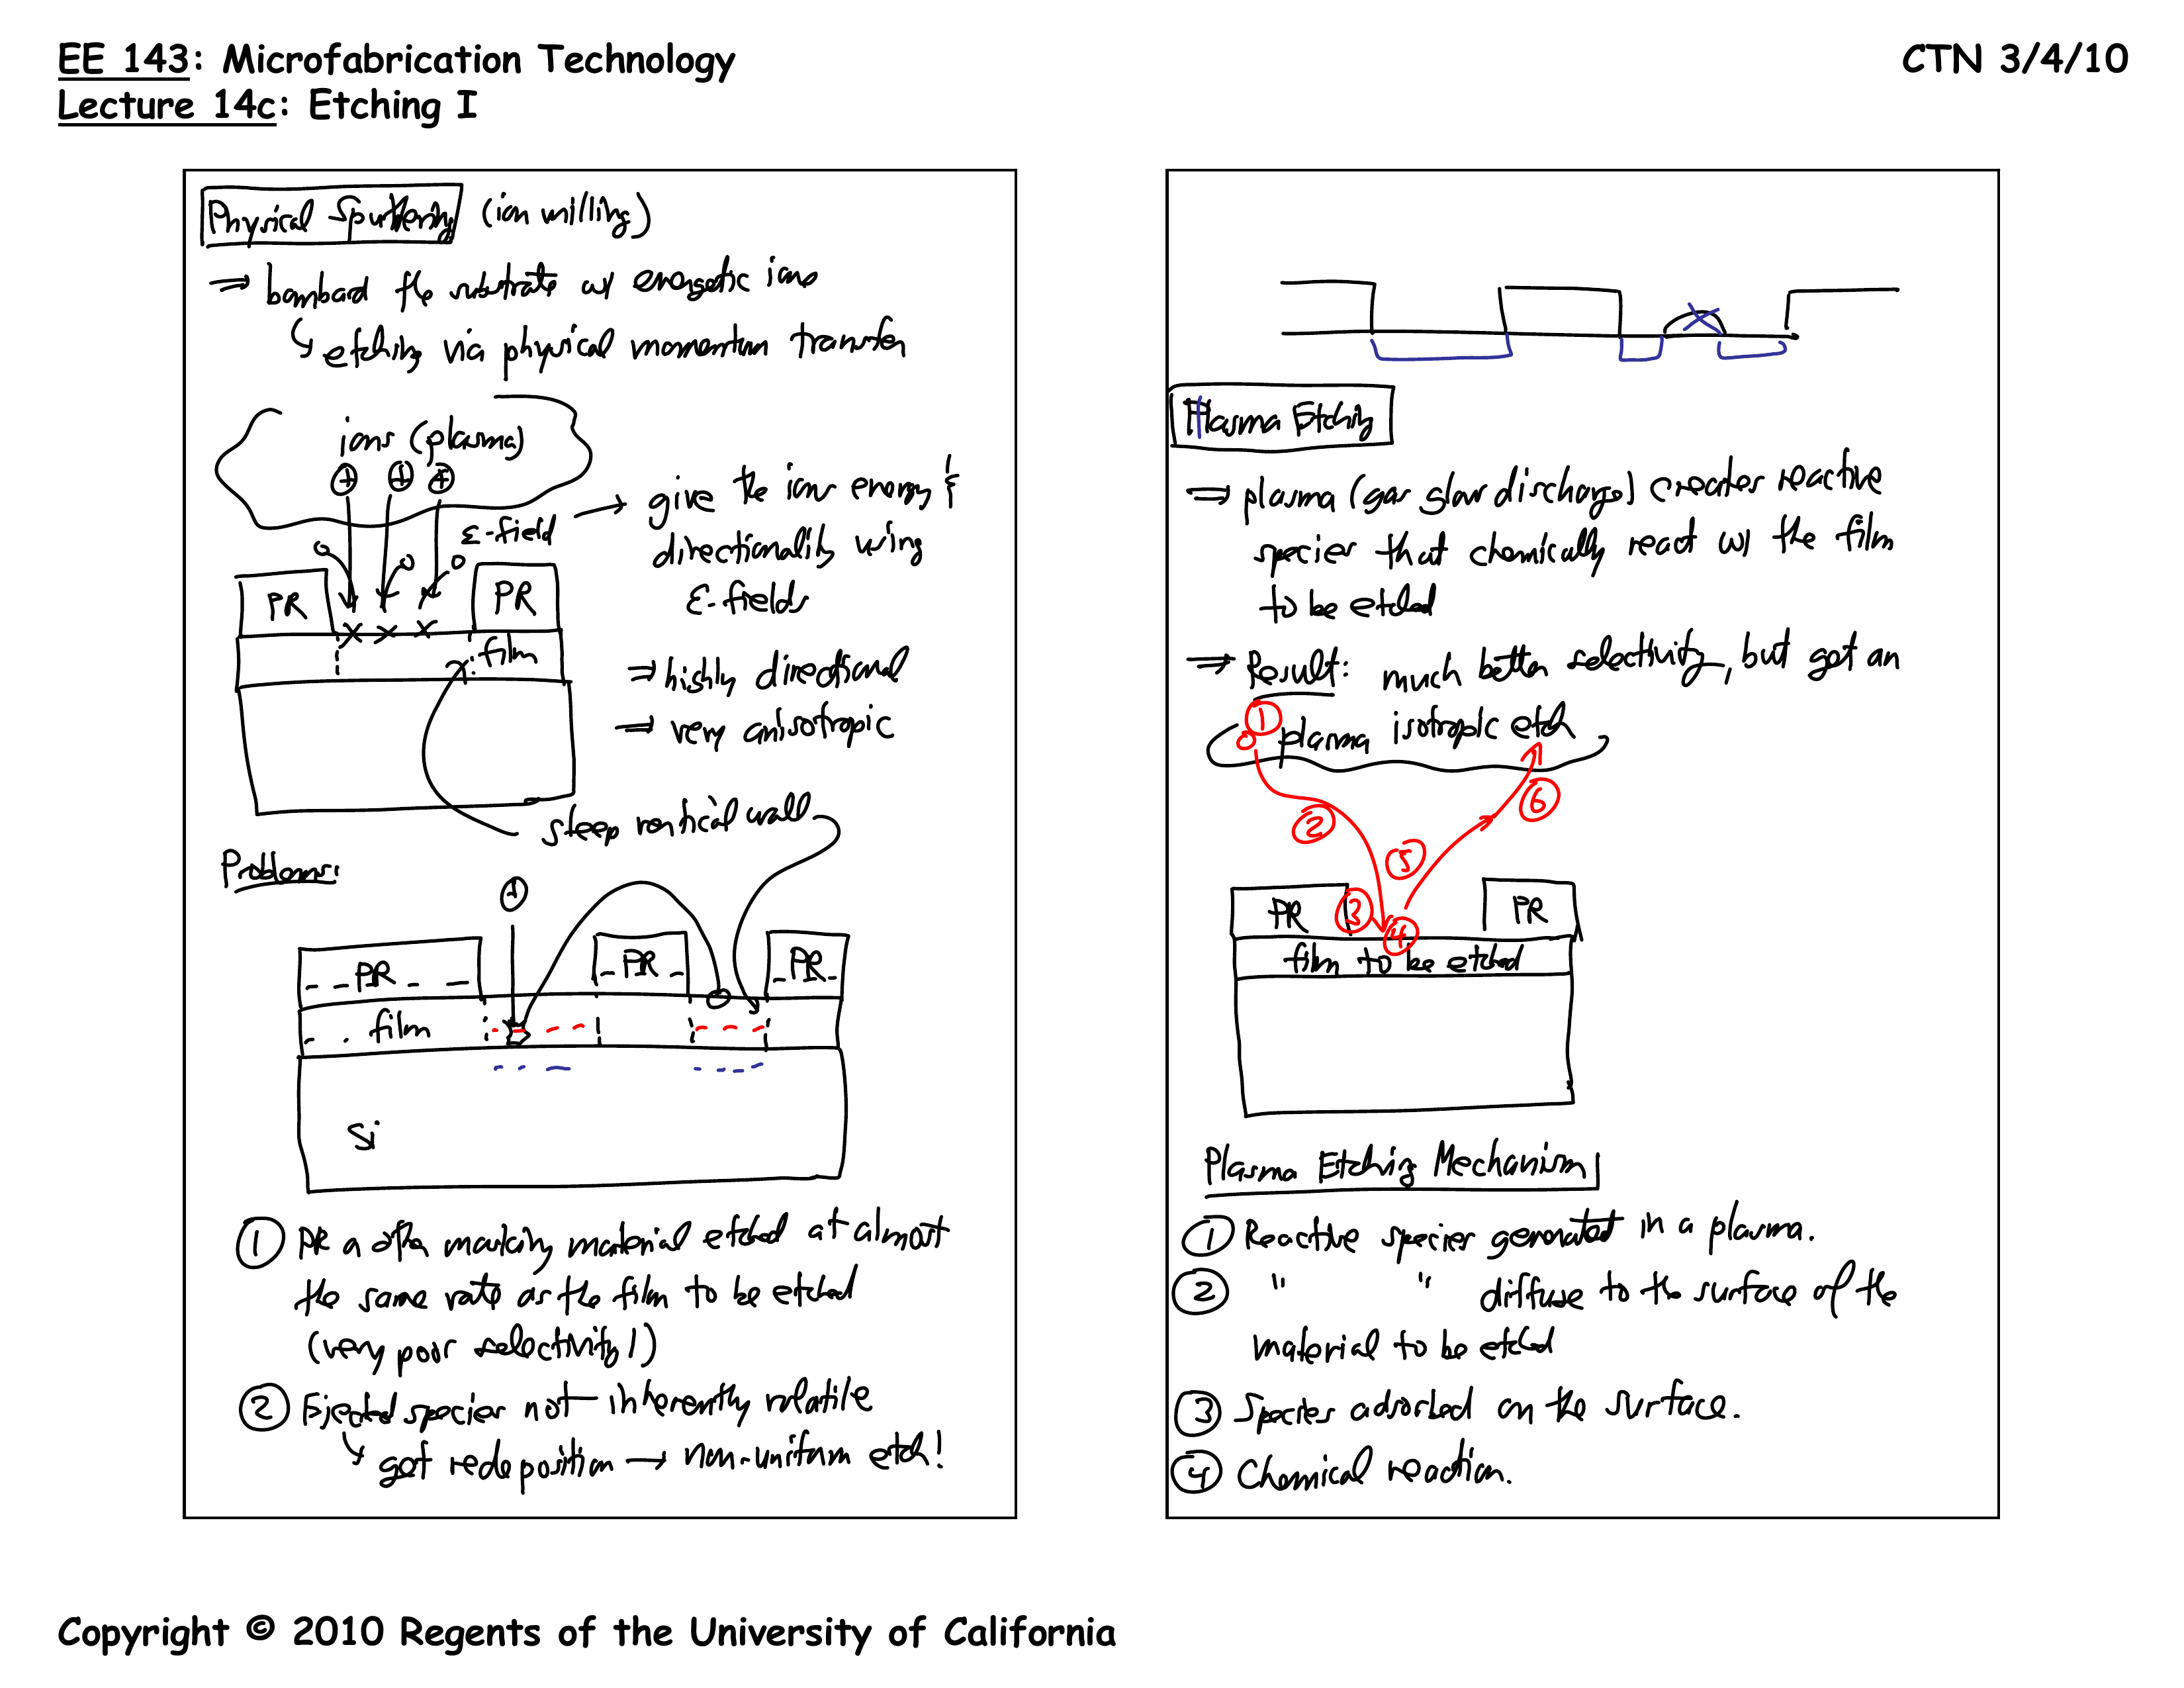 EE 143: Microfabrication Technology
CTN 3/4/10
Lecture 14c: Etching I
Physical Sputtering (ion milling)
⇒ bombard the substrate w/ energetic ions
↳ etching via physical momentum transfer
ions (plasma)
+ + +
E-field → give the ions energy &
directionality using
E-fields
PR PR
film
⇒ highly directional
⇒ very anisotropic
steep vertical wall
Problems:
+
PR PR PR
film
Si
① PR or other masking material etched at almost
the same rate as the film to be etched
(very poor selectivity!)
② Ejected species not inherently volatile
↳ get redeposition → non-uniform etch!
Plasma Etching
⇒ plasma (gas glow discharge) creates reactive
species that chemically react w/ the film
to be etched
⇒ Result: much better selectivity, but get an
isotropic etch
① plasma
② ⑥
⑤
PR ③ ④ PR
film to be etched
Plasma Etching Mechanism
① Reactive species generated in a plasma.
② " " diffuse to the surface of the
material to be etched
③ Species adsorbed on the surface.
④ Chemical reaction.
Copyright © 2010 Regents of the University of California